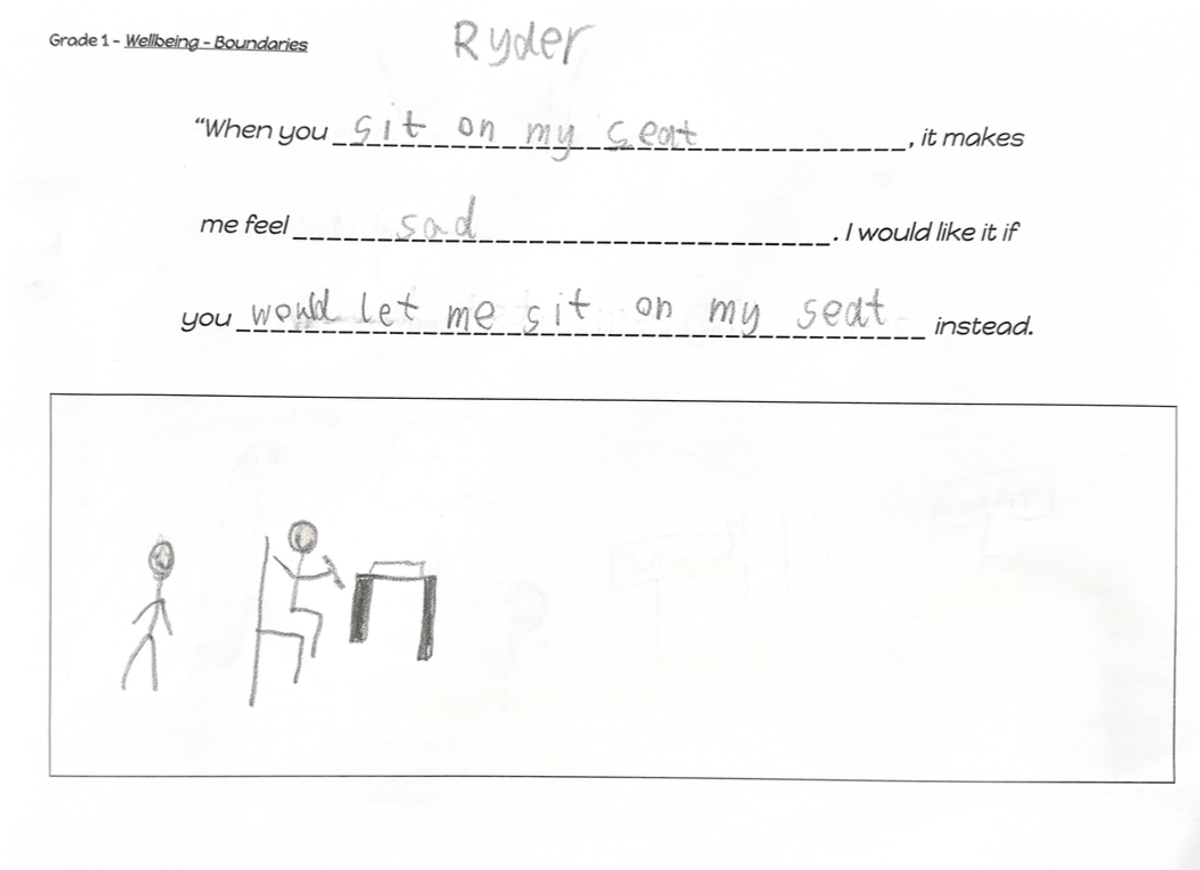 Grade 1 - Wellbeing - Boundaries
Ryder
"When you sit on my seat, it makes
me feel sad. I would like it if
you would let me sit on my seat instead.